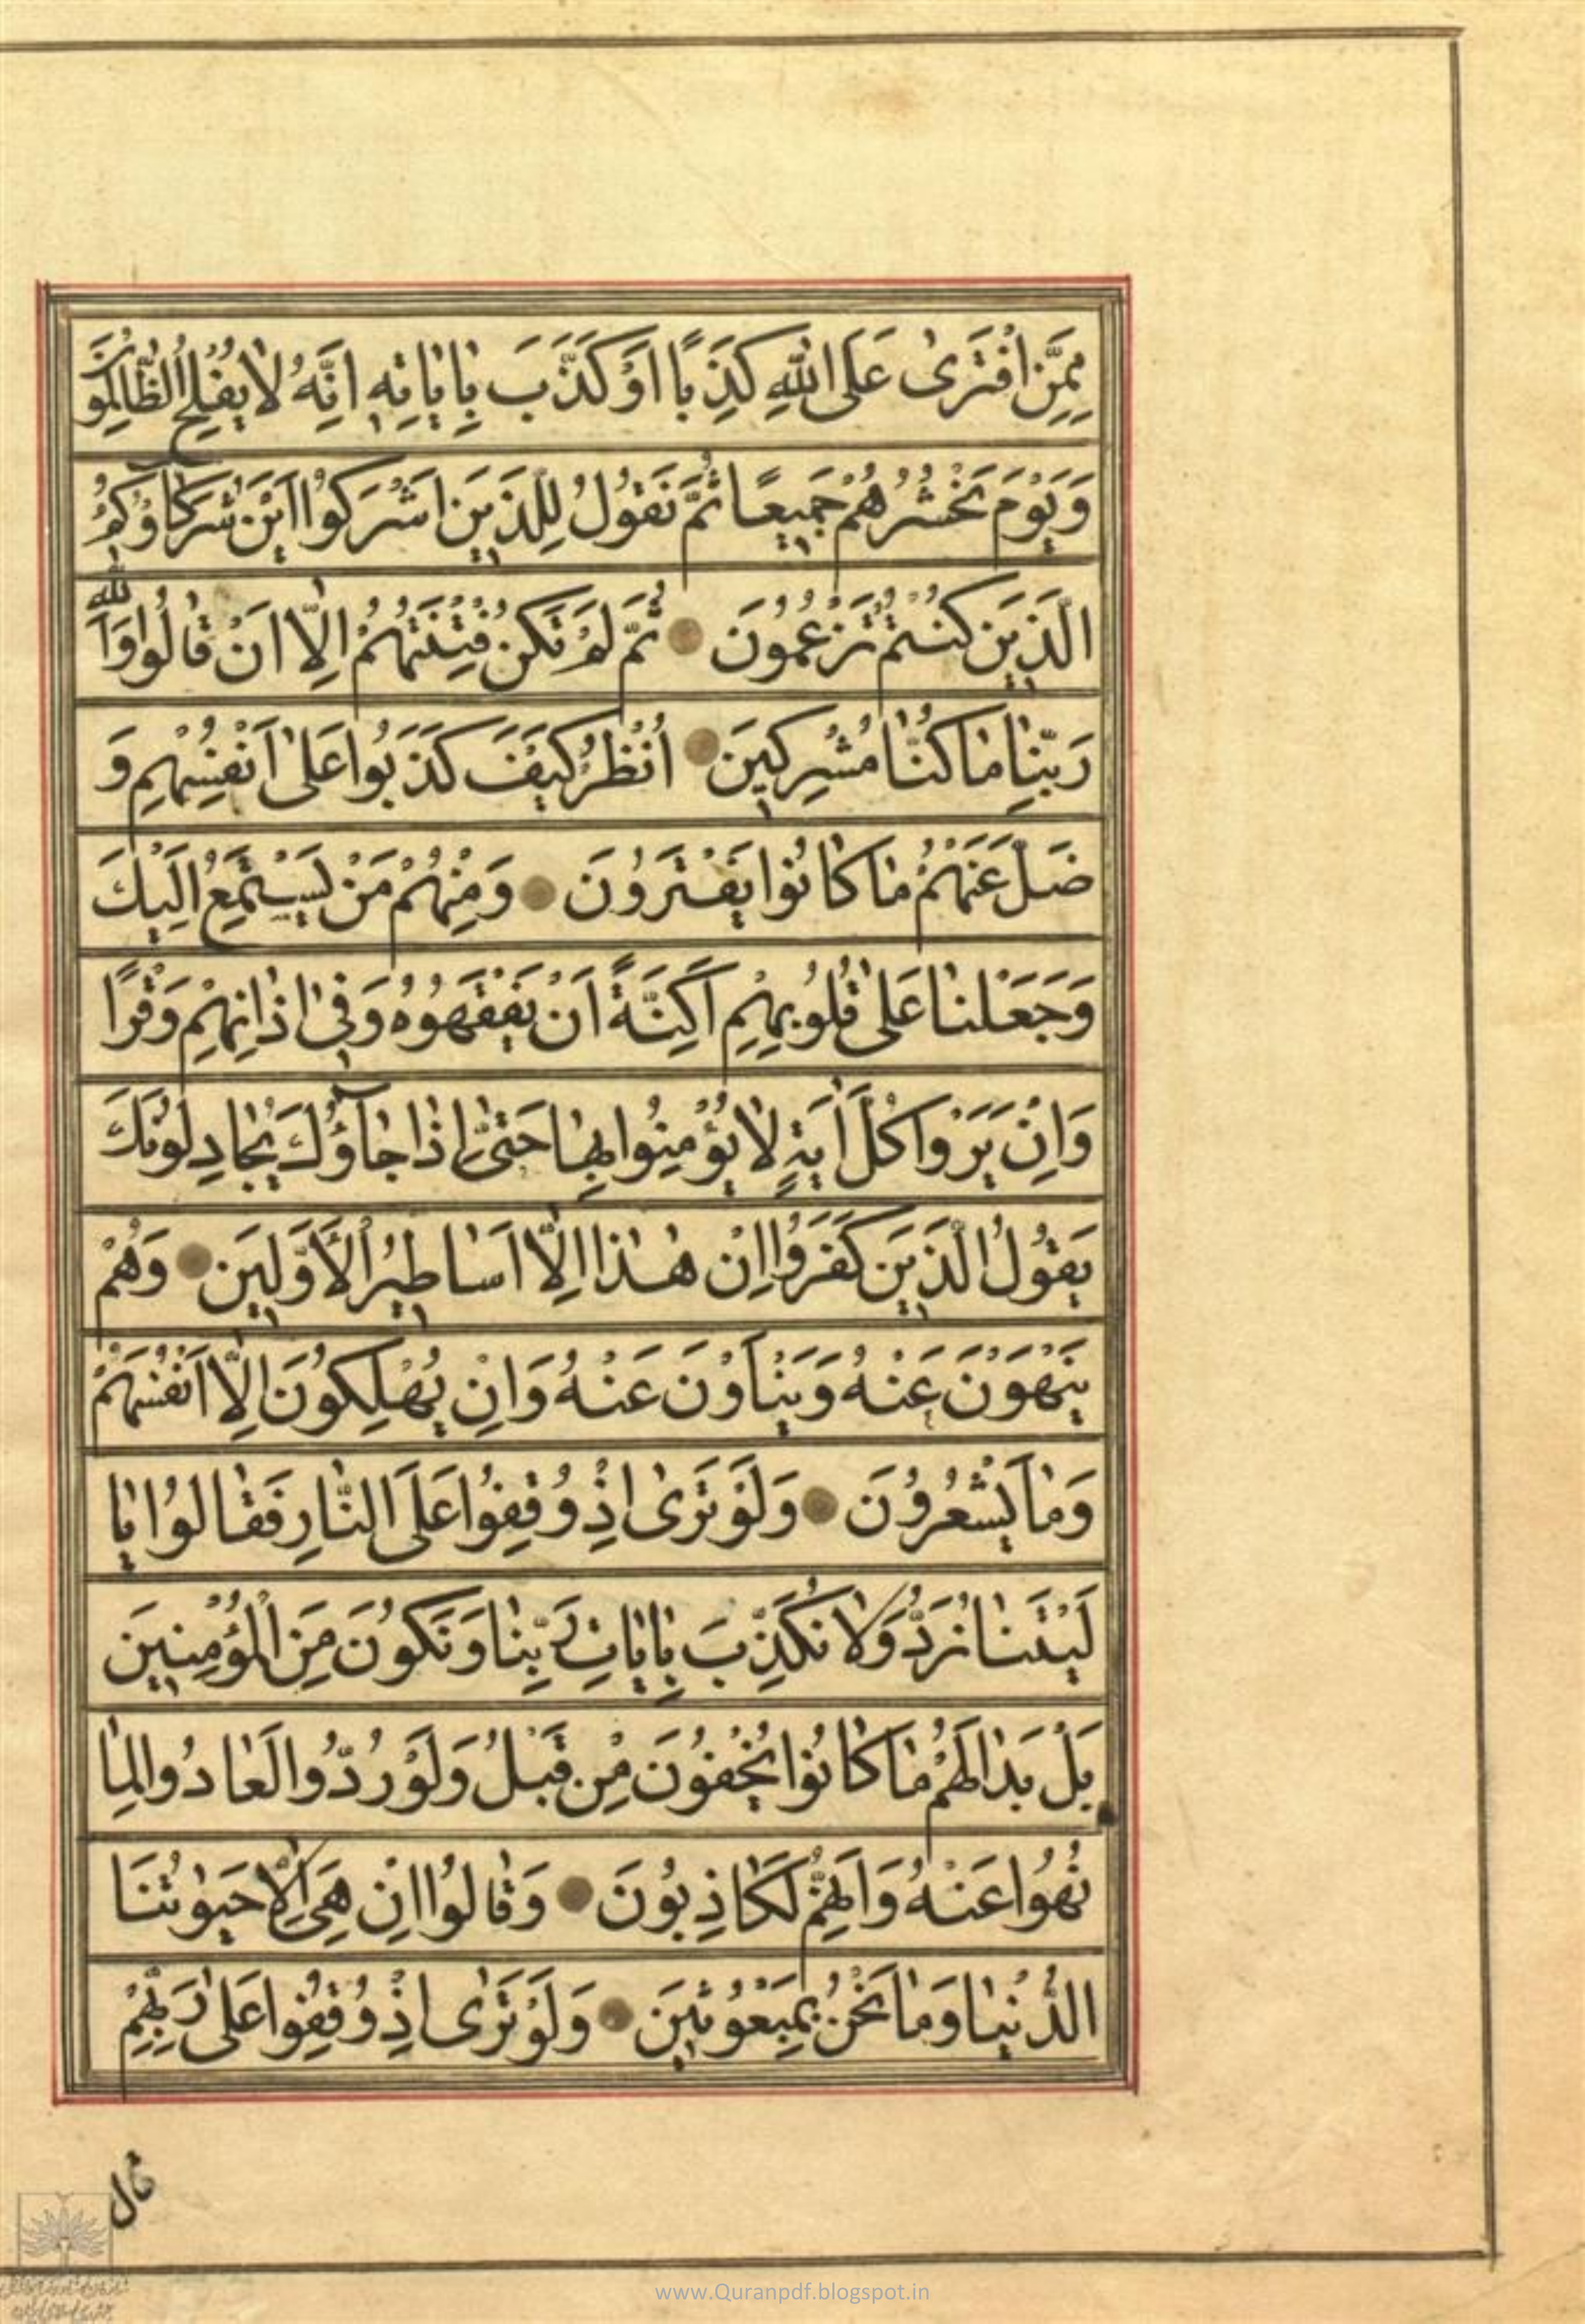 مِمَّنِ افْتَرَىٰ عَلَى اللّٰهِ كَذِبًا اَوْ كَذَّبَ بِاٰيَاتِهٖ اِنَّهُ لَا يُفْلِحُ الظَّالِمُونَ
وَيَوْمَ نَحْشُرُهُمْ جَمِيعًا ثُمَّ نَقُولُ لِلَّذِينَ اَشْرَكُوا اَيْنَ شُرَكَاؤُكُمُ
الَّذِينَ كُنْتُمْ تَزْعُمُونَ ثُمَّ لَمْ تَكُنْ فِتْنَتُهُمْ اِلَّا اَنْ قَالُوا وَاللّٰهِ
رَبِّنَا مَا كُنَّا مُشْرِكِينَ اُنْظُرْ كَيْفَ كَذَبُوا عَلٰى اَنْفُسِهِمْ وَ
ضَلَّ عَنْهُمْ مَا كَانُوا يَفْتَرُونَ وَمِنْهُمْ مَنْ يَسْتَمِعُ اِلَيْكَ
وَجَعَلْنَا عَلٰى قُلُوبِهِمْ اَكِنَّةً اَنْ يَفْقَهُوهُ وَفِي اٰذَانِهِمْ وَقْرًا
وَاِنْ يَرَوْا كُلَّ اٰيَةٍ لَا يُؤْمِنُوا بِهَا حَتّٰى اِذَا جَاؤُكَ يُجَادِلُونَكَ
يَقُولُ الَّذِينَ كَفَرُوا اِنْ هٰذَا اِلَّا اَسَاطِيرُ الْاَوَّلِينَ وَهُمْ
يَنْهَوْنَ عَنْهُ وَيَنْاَوْنَ عَنْهُ وَاِنْ يُهْلِكُونَ اِلَّا اَنْفُسَهُمْ
وَمَا يَشْعُرُونَ وَلَوْ تَرٰى اِذْ وُقِفُوا عَلَى النَّارِ فَقَالُوا يَا
لَيْتَنَا نُرَدُّ وَلَا نُكَذِّبَ بِاٰيَاتِ رَبِّنَا وَنَكُونَ مِنَ الْمُؤْمِنِينَ
بَلْ بَدَا لَهُمْ مَا كَانُوا يُخْفُونَ مِنْ قَبْلُ وَلَوْ رُدُّوا لَعَادُوا لِمَا
نُهُوا عَنْهُ وَاِنَّهُمْ لَكَاذِبُونَ وَقَالُوا اِنْ هِيَ اِلَّا حَيٰوتُنَا
الدُّنْيَا وَمَا نَحْنُ بِمَبْعُوثِينَ وَلَوْ تَرٰى اِذْ وُقِفُوا عَلٰى رَبِّهِمْ
قال
www.Quranpdf.blogspot.in